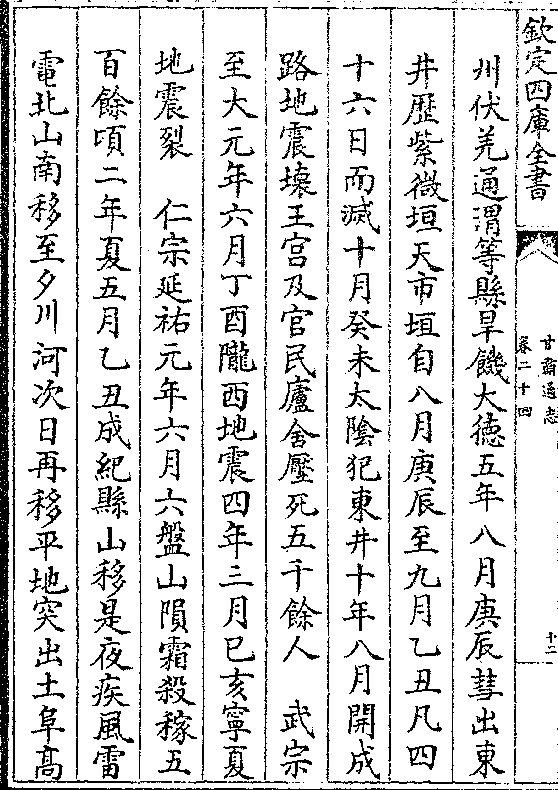 欽定四庫全書
甘肅通志
卷二十四
十二
州伏羌通渭等縣旱饑大德五年八月庚辰彗出東
井歷紫微垣天市垣自八月庚辰至九月乙丑凡四
十六日而滅十月癸未太陰犯東井十年八月開成
路地震壊王宫及官民廬舍壓死五千餘人　武宗
至大元年六月丁酉隴西地震四年三月已亥寧夏
地震裂　仁宗延祐元年六月六盤山隕霜殺稼五
百餘頃二年夏五月乙丑成紀縣山移是夜疾風雷
電北山南移至夕川河次日再移平地突出土阜高